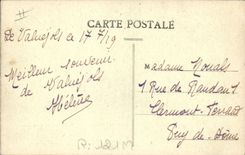 II
CARTE POSTALE
De Valuéjols ce 17/7/19
Meilleur souvenir
de Valuéjols
Hélène
Madame Nouals
1 Rue de Randant
Clermont-Ferrand
Puy de Dôme